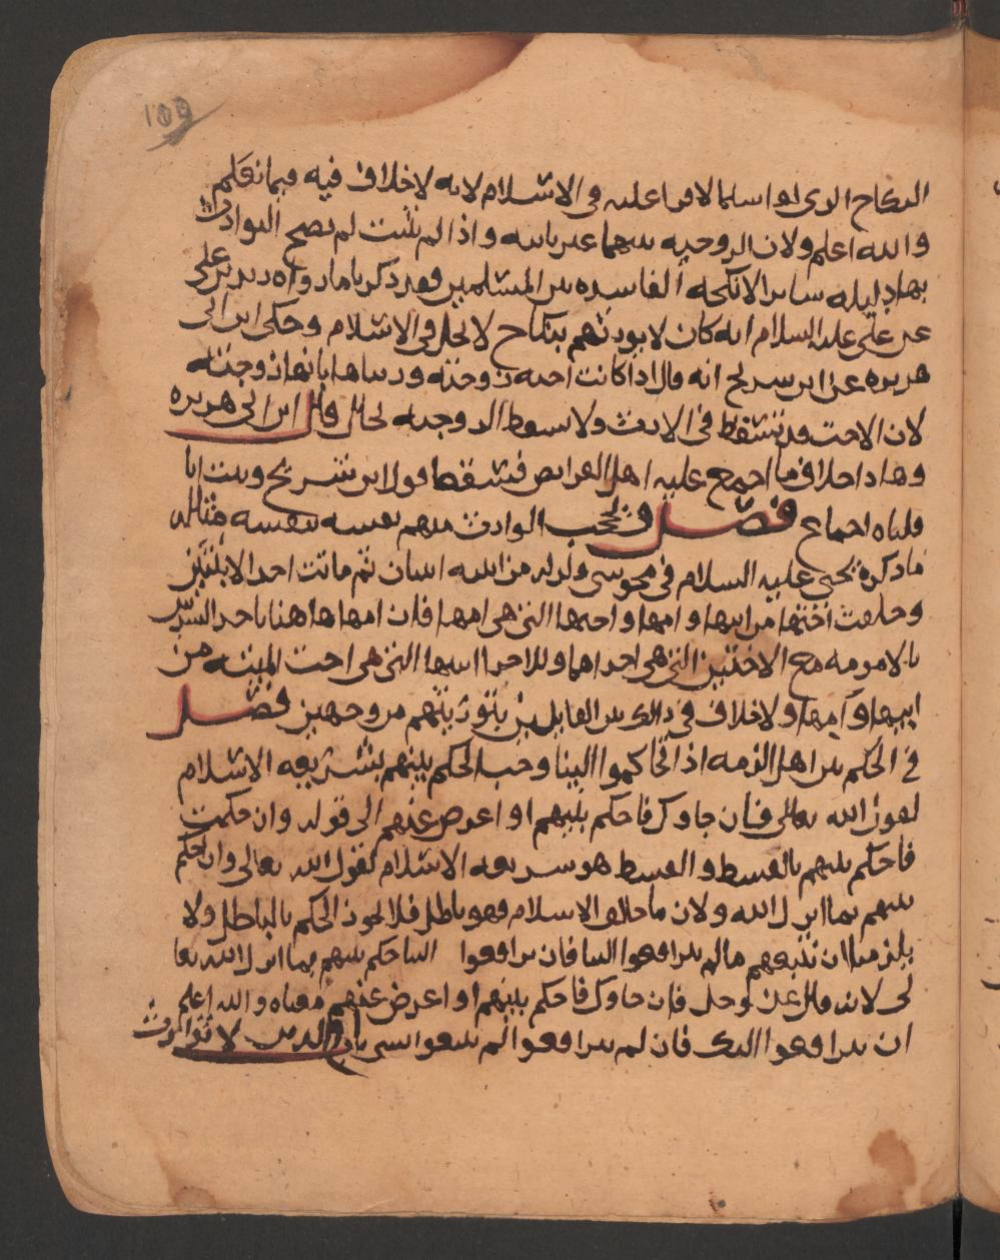 109
النكاح الذي لو اسلما لاقرا عليه في الاسلام لانه لا خلاف فيه فيما نعلم
والله اعلم ولان الزوجيه بينهما غير ثابته واذا لم تثبت لم يصح التوارث
بها دليله سائر الانكحه الفاسده بين المسلمين وقد ذكرنا ما رواه زيد بن علي
عن علي عليه السلام انه كان لا يورثهم بنكاح لا يحل في الاسلام وحكى ابن ابي
هريره عن ابن سريج انه قال اذا كانت اخته زوجته ورثناها بانها زوجته
لان الاخت قد تسقط في الارث ولا تسقط الزوجيه بحال قال ابن ابي هريره
وهذا خلاف ما اجمع عليه اهل الفرايض فسقط قول ابن شريح وثبت انا
قلناه اجماع فصل وقد يحجب الوارث منهم نفسه بنفسه مثاله
ماذكره يحيى عليه السلام في مجوسي ولد له من ابنته ابنتان ثم ماتت احد الابنتين
وخلفت اختها من ابيها وامها واختها التي هي امها فان امها هاهنا تاخذ السدس
بالامومه مع الاختين التي هي احداهما وللاخرا ابنتها التي هي اخت الميته من
ابيها وامها ولا خلاف في ذلك بين القايلين بتوريثهم من وجهين فصل
في الحكم بين اهل الذمه اذا تحاكموا الينا وجب الحكم بينهم بشريعه الاسلام
لقول الله تعالى فان جاوك فاحكم بينهم او اعرض عنهم الى قوله وان حكمت
فاحكم بينهم بالقسط والقسط هو شريعه الاسلام لقول الله تعالى وان احكم
بينهم بما انزل الله ولان ما خالف الاسلام فهو باطل فلا يجوز الحكم بالباطل ولا
يلزمنا ان نتبعهم مالم يترافعوا الينا فان ترافعوا الينا حكم بينهم بما انزل الله تعا
لى لانه قال عز وجل فان جاوك فاحكم بينهم او اعرض عنهم معناه والله اعلم
ان يترافعوا اليك فان لم يترافعوا لم يتبعوا بشي باب والدين لا توارث